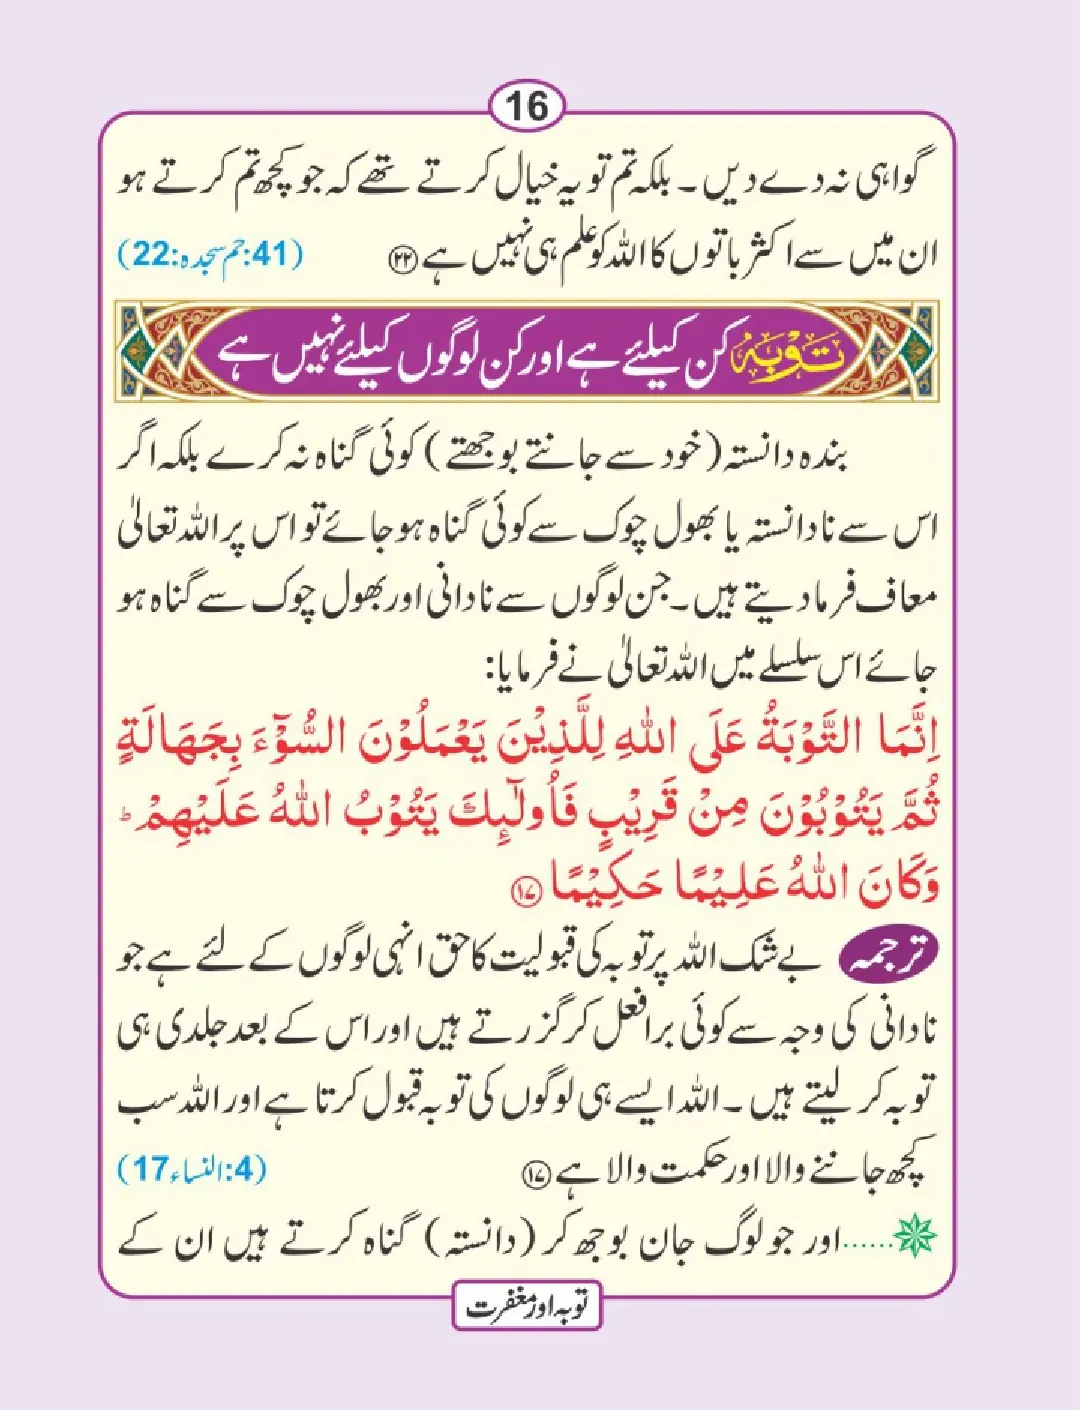 16
گواہی نہ دے دیں۔ بلکہ تم تو یہ خیال کرتے تھے کہ جو کچھ تم کرتے ہو
ان میں سے اکثر باتوں کا اللہ کو علم ہی نہیں ہے ﴿۲۲﴾ (41:حم سجدہ:22)
توبہ کن کیلئے ہے اور کن لوگوں کیلئے نہیں ہے
بندہ دانستہ (خود سے جانتے بوجھتے) کوئی گناہ نہ کرے بلکہ اگر
اس سے نادانستہ یا بھول چوک سے کوئی گناہ ہو جائے تو اس پر اللہ تعالیٰ
معاف فرما دیتے ہیں۔ جن لوگوں سے نادانی اور بھول چوک سے گناہ ہو
جائے اس سلسلے میں اللہ تعالیٰ نے فرمایا:
اِنَّمَا التَّوْبَةُ عَلَى اللهِ لِلَّذِيْنَ يَعْمَلُوْنَ السُّوْٓءَ بِجَهَالَةٍ
ثُمَّ يَتُوْبُوْنَ مِنْ قَرِيْبٍ فَاُولٰٓئِكَ يَتُوْبُ اللهُ عَلَيْهِمْ ؕ
وَكَانَ اللهُ عَلِيْمًا حَكِيْمًا ﴿۱۷﴾
ترجمہ بے شک اللہ پر توبہ کی قبولیت کا حق انہی لوگوں کے لئے ہے جو
نادانی کی وجہ سے کوئی برا فعل کر گزرتے ہیں اور اس کے بعد جلدی ہی
توبہ کر لیتے ہیں۔ اللہ ایسے ہی لوگوں کی توبہ قبول کرتا ہے اور اللہ سب
کچھ جاننے والا اور حکمت والا ہے ﴿۱۷﴾ (4:النساء17)
......اور جو لوگ جان بوجھ کر (دانستہ) گناہ کرتے ہیں ان کے
توبہ اور مغفرت